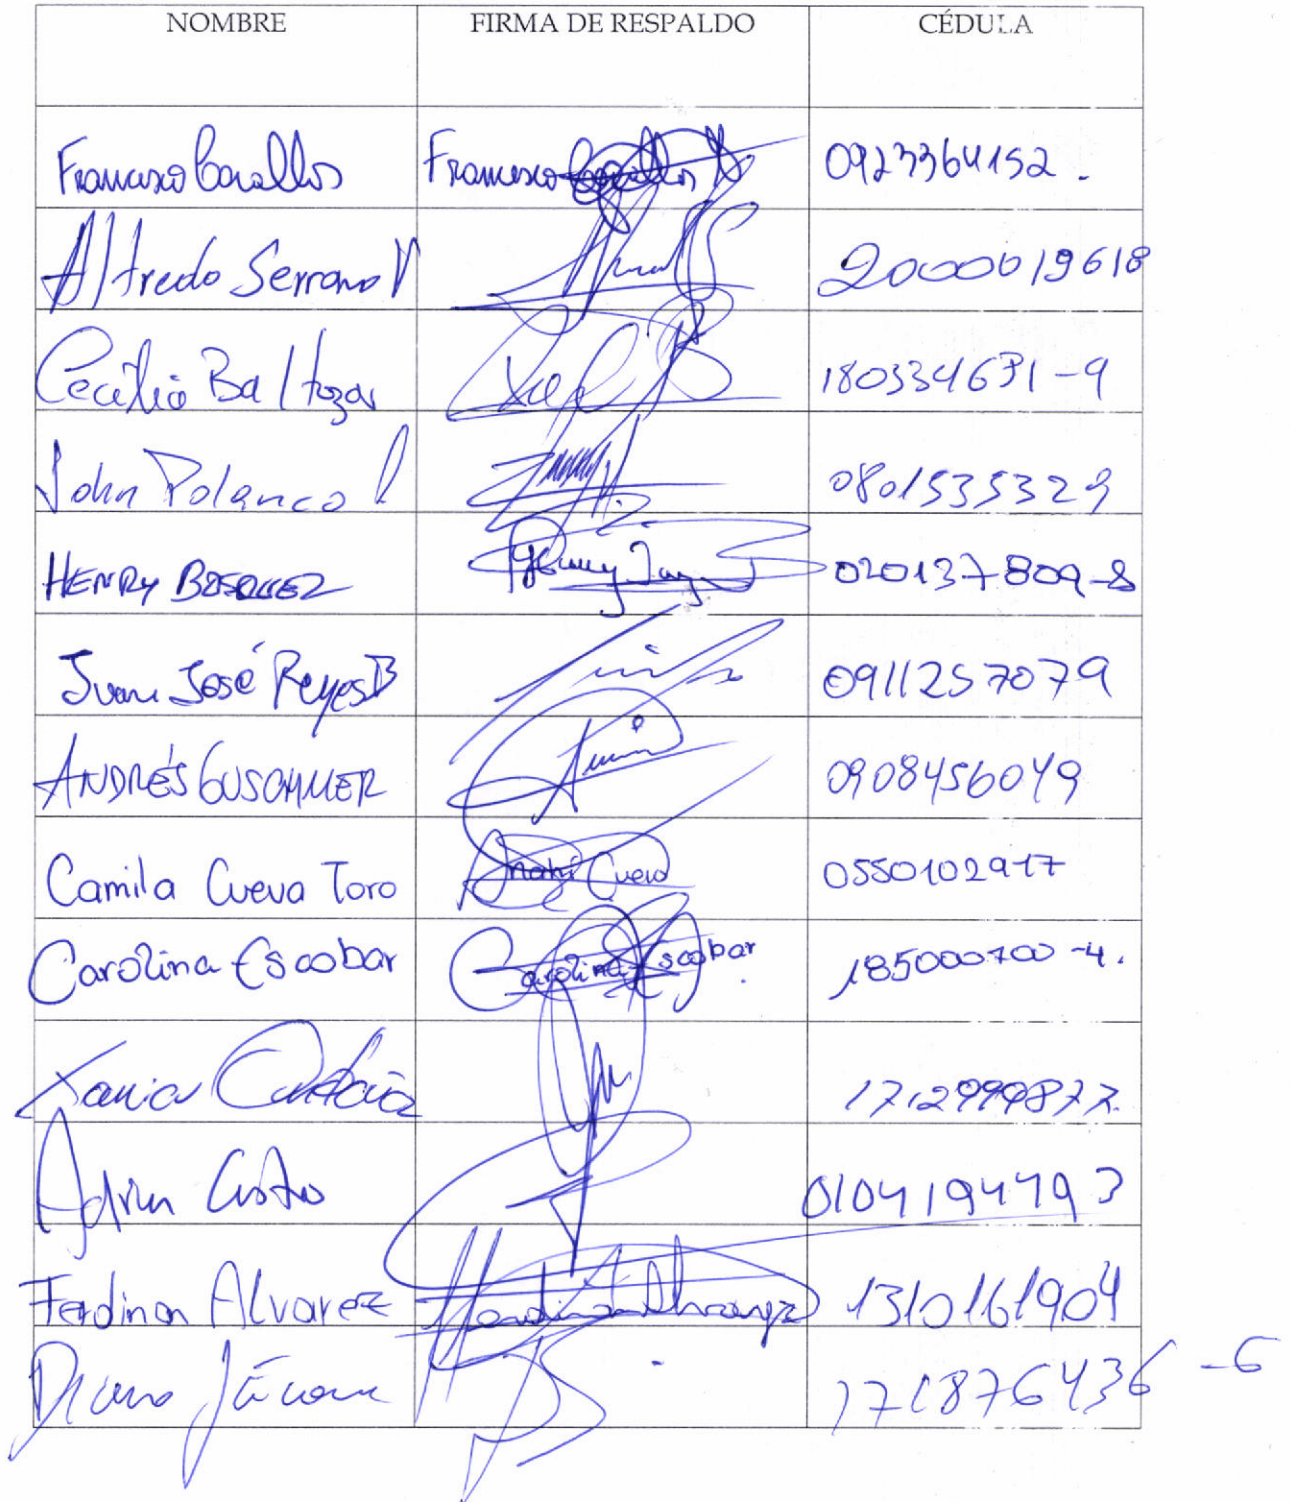 NOMBRE FIRMA DE RESPALDO CÉDULA
Francisco Cevallos Francisco Cevallos 0923364152.
Alfredo Serrano V 2000019618
Cecilia Baltazar 180334631-9
John Polanco 0801535329
HENRY BOSQUEZ Henry 020137809-8
Juan José Reyes B 0911257079
ANDRÉS GUSCHMER 0908456049
Camila Cueva Toro Anahí Cueva 0550102917
Carolina Escobar Carolina Escobar 185000700-4.
Xavier 1712999877.
Adrian Castro 0104194493
Ferdinan Alvarez Ferdinan Alvarez 1310161904
Diana Jácome 171876436-6